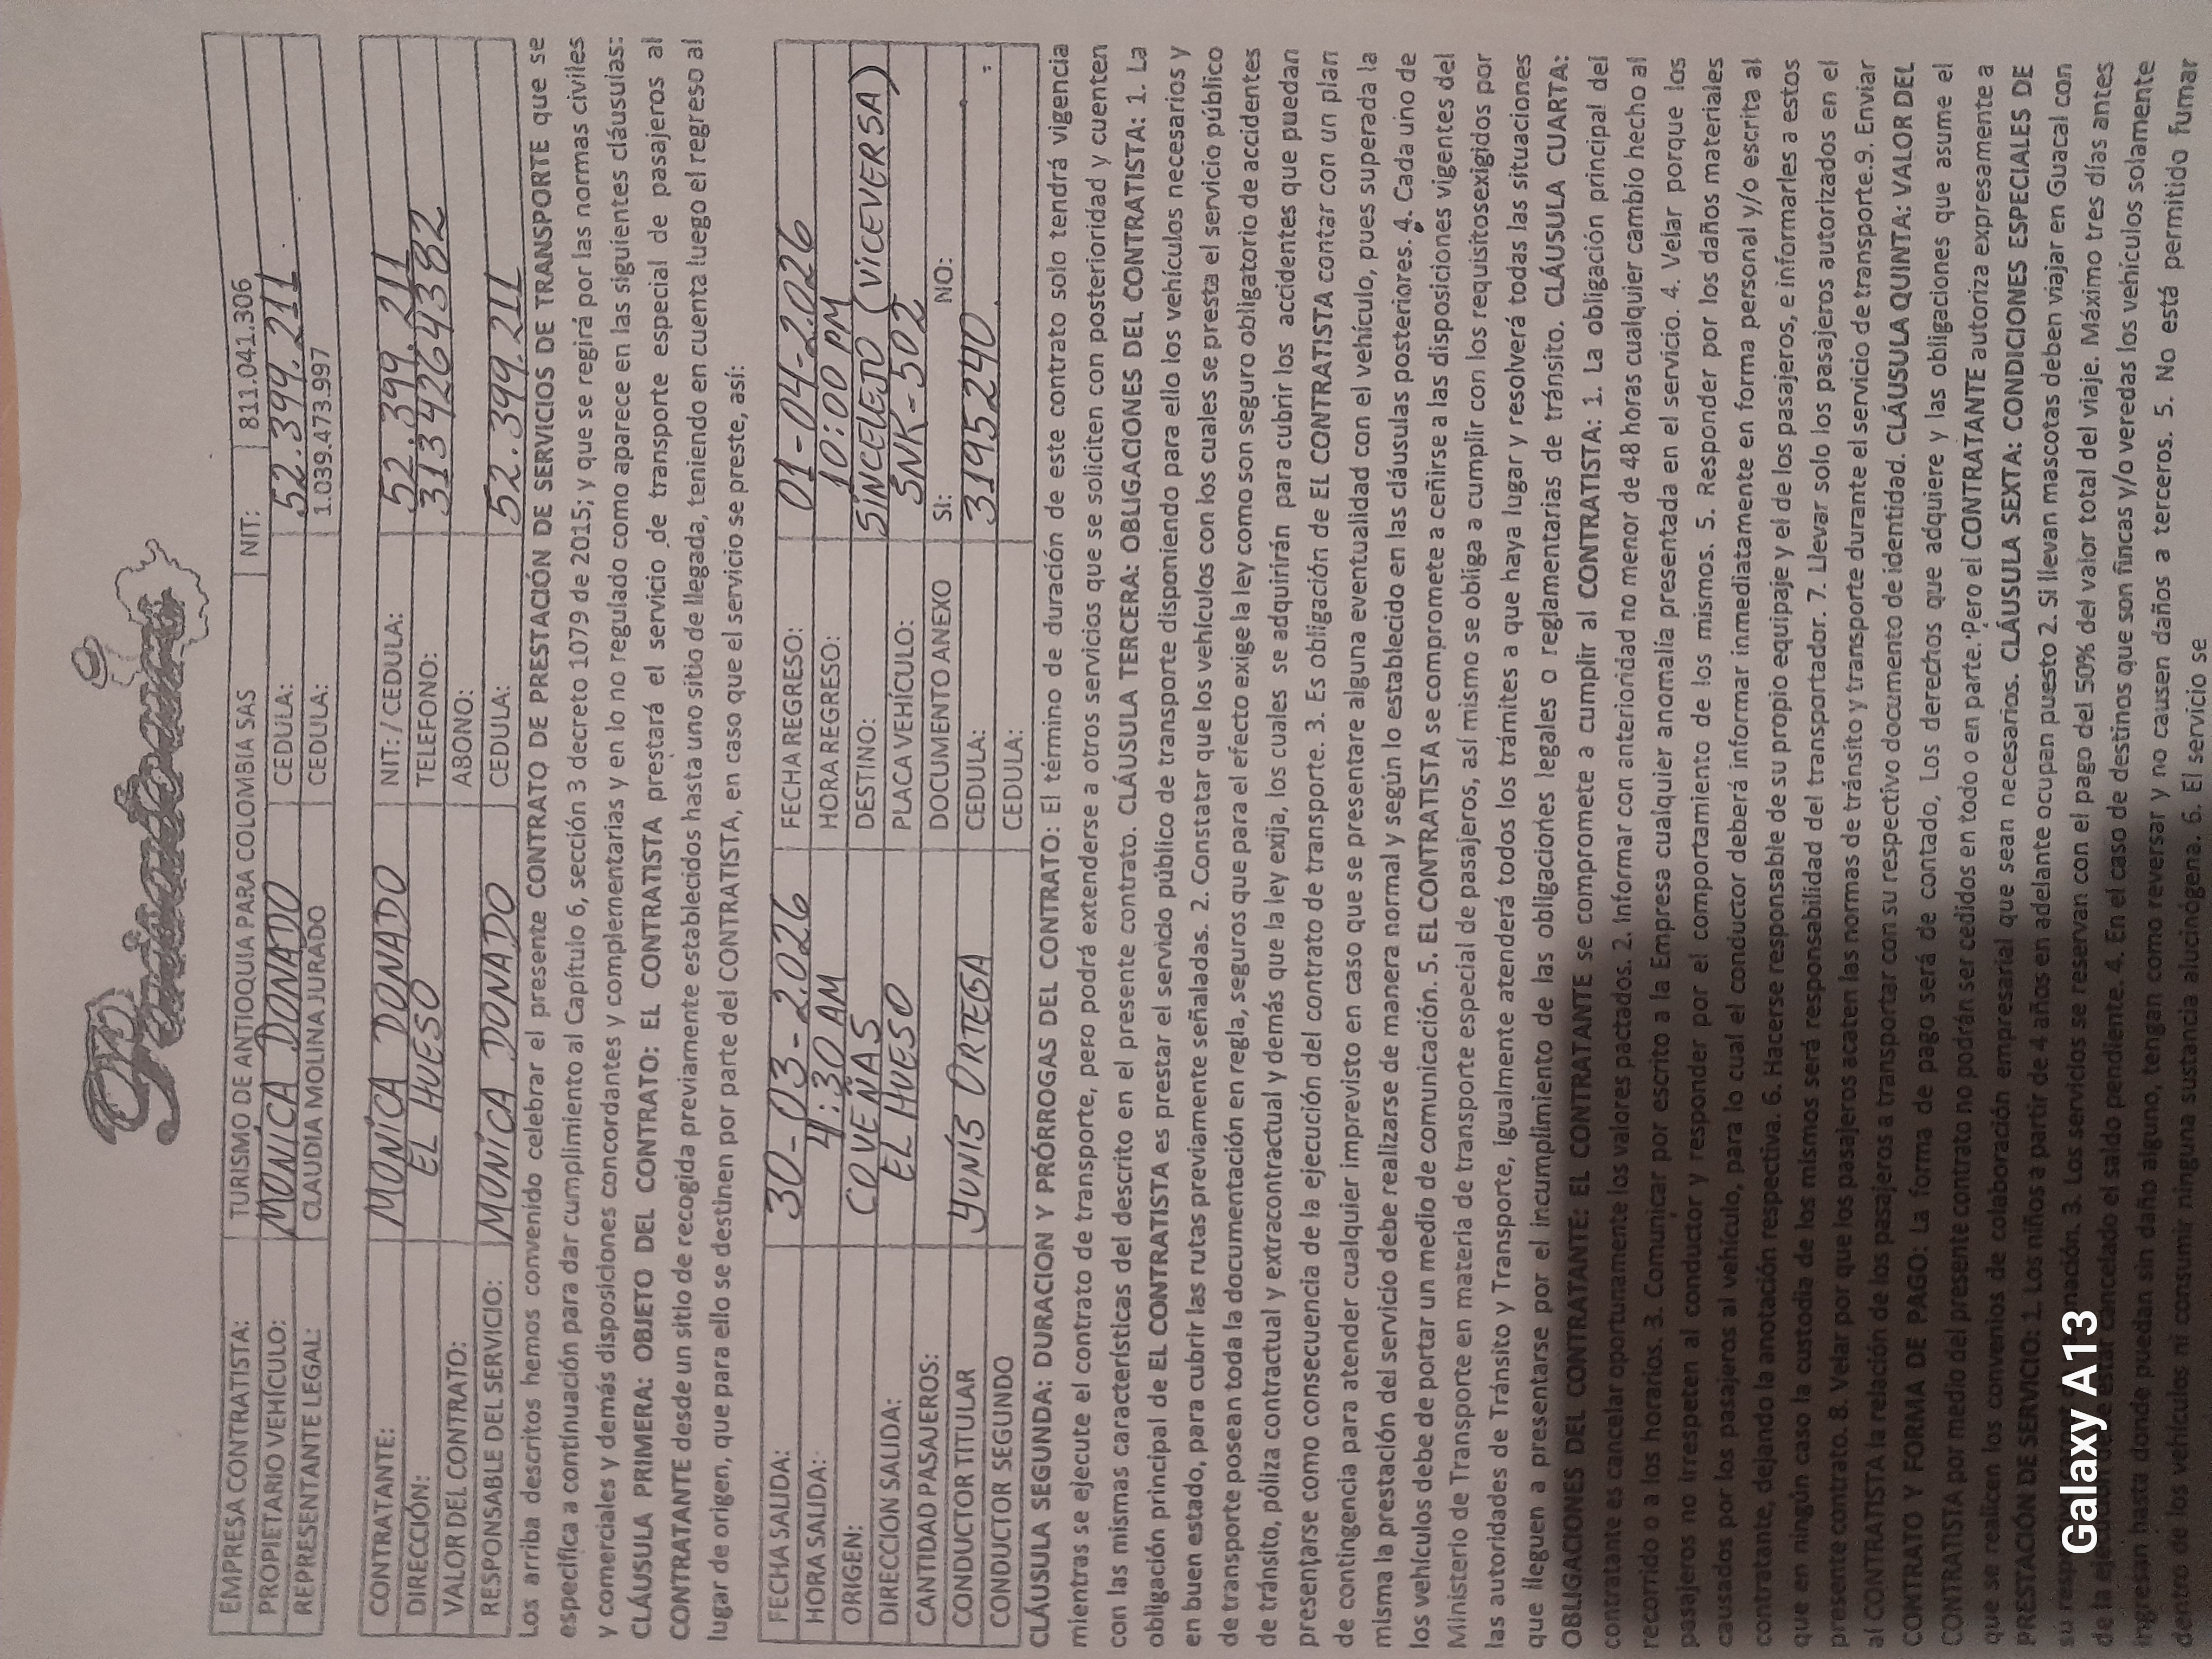 Turianticolombia
EMPRESA CONTRATISTA: TURISMO DE ANTIOQUIA PARA COLOMBIA SAS NIT: 811.041.306
PROPIETARIO VEHÍCULO: MONICA DONADO CEDULA: 52.399.211
REPRESENTANTE LEGAL: CLAUDIA MOLINA JURADO CEDULA: 1.039.473.997
CONTRATANTE: MONICA DONADO NIT: / CEDULA: 52.399.211
DIRECCIÓN: EL HUESO TELEFONO: 3134264382
VALOR DEL CONTRATO: ABONO:
RESPONSABLE DEL SERVICIO: MONICA DONADO CEDULA: 52.399.211
Los arriba descritos hemos convenido celebrar el presente CONTRATO DE PRESTACIÓN DE SERVICIOS DE TRANSPORTE que se
especifica a continuación para dar cumplimiento al Capítulo 6, sección 3 decreto 1079 de 2015; y que se regirá por las normas civiles
y comerciales y demás disposiciones concordantes y complementarias y en lo no regulado como aparece en las siguientes cláusulas:
CLÁUSULA PRIMERA: OBJETO DEL CONTRATO: EL CONTRATISTA prestará el servicio de transporte especial de pasajeros al
CONTRATANTE desde un sitio de recogida previamente establecidos hasta uno sitio de llegada, teniendo en cuenta luego el regreso al
lugar de origen, que para ello se destinen por parte del CONTRATISTA, en caso que el servicio se preste, así:
FECHA SALIDA: 30-03-2.026 FECHA REGRESO: 01-04-2.026
HORA SALIDA: 4:30 AM HORA REGRESO: 10:00 PM
ORIGEN: COVEÑAS DESTINO: SINCELEJO (VICEVERSA)
DIRECCION SALIDA: EL HUESO PLACA VEHÍCULO: SNK-502
CANTIDAD PASAJEROS: DOCUMENTO ANEXO SI: NO:
CONDUCTOR TITULAR YUNIS ORTEGA CEDULA: 3195240
CONDUCTOR SEGUNDO CEDULA:
CLÁUSULA SEGUNDA: DURACION Y PRÓRROGAS DEL CONTRATO: El término de duración de este contrato solo tendrá vigencia
mientras se ejecute el contrato de transporte, pero podrá extenderse a otros servicios que se soliciten con posterioridad y cuenten
con las mismas características del descrito en el presente contrato. CLÁUSULA TERCERA: OBLIGACIONES DEL CONTRATISTA: 1. La
obligación principal de EL CONTRATISTA es prestar el servicio público de transporte disponiendo para ello los vehículos necesarios y
en buen estado, para cubrir las rutas previamente señaladas. 2. Constatar que los vehículos con los cuales se presta el servicio público
de transporte posean toda la documentación en regla, seguros que para el efecto exige la ley como son seguro obligatorio de accidentes
de tránsito, póliza contractual y extracontractual y demás que la ley exija, los cuales se adquirirán para cubrir los accidentes que puedan
presentarse como consecuencia de la ejecución del contrato de transporte. 3. Es obligación de EL CONTRATISTA contar con un plan
de contingencia para atender cualquier imprevisto en caso que se presentare alguna eventualidad con el vehículo, pues superada la
misma la prestación del servicio debe realizarse de manera normal y según lo establecido en las cláusulas posteriores. 4. Cada uno de
los vehículos debe de portar un medio de comunicación. 5. EL CONTRATISTA se compromete a ceñirse a las disposiciones vigentes del
Ministerio de Transporte en materia de transporte especial de pasajeros, así mismo se obliga a cumplir con los requisitosexigidos por
las autoridades de Tránsito y Transporte, igualmente atenderá todos los trámites a que haya lugar y resolverá todas las situaciones
que lleguen a presentarse por el incumplimiento de las obligaciones legales o reglamentarias de tránsito. CLÁUSULA CUARTA:
OBLIGACIONES DEL CONTRATANTE: EL CONTRATANTE se compromete a cumplir al CONTRATISTA: 1. La obligación principal del
contratante es cancelar oportunamente los valores pactados. 2. Informar con anterioridad no menor de 48 horas cualquier cambio hecho al
recorrido o a los horarios. 3. Comunicar por escrito a la Empresa cualquier anomalía presentada en el servicio. 4. Velar porque los
pasajeros no irrespeten al conductor y responder por el comportamiento de los mismos. 5. Responder por los daños materiales
causados por los pasajeros al vehículo, para lo cual el conductor deberá informar inmediatamente en forma personal y/o escrita al
contratante, dejando la anotación respectiva. 6. Hacerse responsable de su propio equipaje y el de los pasajeros, e informarles a estos
que en ningún caso la custodia de los mismos será responsabilidad del transportador. 7. Llevar solo los pasajeros autorizados en el
presente contrato. 8. Velar por que los pasajeros acaten las normas de tránsito y transporte durante el servicio de transporte.9. Enviar
al CONTRATISTA la relación de los pasajeros a transportar con su respectivo documento de identidad. CLÁUSULA QUINTA: VALOR DEL
CONTRATO Y FORMA DE PAGO: La forma de pago será de contado, Los derechos que adquiere y las obligaciones que asume el
CONTRATISTA por medio del presente contrato no podrán ser cedidos en todo o en parte. Pero el CONTRATANTE autoriza expresamente a
que se realicen los convenios de colaboración empresarial que sean necesarios. CLÁUSULA SEXTA: CONDICIONES ESPECIALES DE
PRESTACIÓN DE SERVICIO: 1. Los niños a partir de 4 años en adelante ocupan puesto 2. Si llevan mascotas deben viajar en Guacal con
su 3. Los servicios se reservan con el pago del 50% del valor total del viaje. Máximo tres días antes
de la cancelado el saldo pendiente. 4. En el caso de destinos que son fincas y/o veredas los vehículos solamente
ingresan hasta donde puedan sin daño alguno, tengan como reversar y no causen daños a terceros. 5. No está permitido fumar
dentro de los vehículos ni consumir ninguna sustancia alucinógena. 6. El servicio se
Galaxy A13